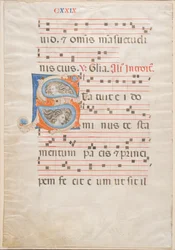 CXXIX
uid. & omis mãsuetudi
nis eius. V. Glia. Als Introit.
Sta tuit e i do
mi nus te sta
mentum pa cis & princi
pem fe cit e um ut sit il